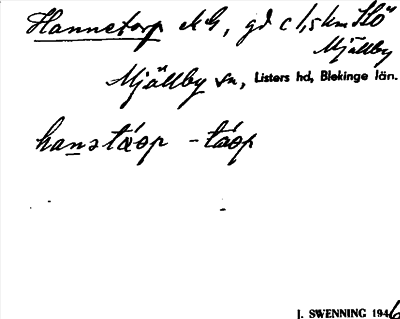 Hannetorp MG, gd c 1,5 km SO
Mjällby
Mjällby sn, Listers hd, Blekinge län.
hanətáop - táop
J. SWENNING 1946